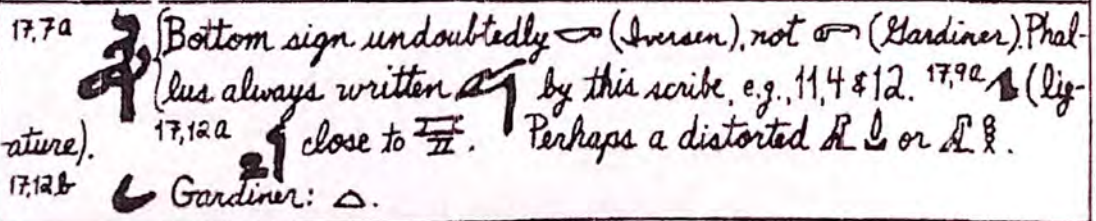 17,7a Bottom sign undoubtedly (Iversen), not (Gardiner). Phal-
lus always written by this scribe, e.g., 11,4 & 12. 17,9a (lig-
ature). 17,12a close to . Perhaps a distorted or .
17,12b Gardiner: .